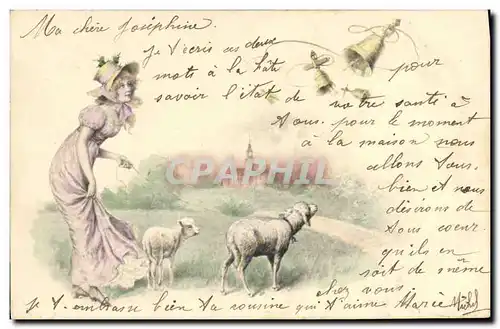 Ma chère Joséphine.
Je t'écris ces deux
mots à la hâte pour
savoir l'état de votre santé à
tous. pour le moment
à la maison nous
allons tous
bien et nous
désirons de
tous coeur
qu'ils en
soit de même
chez vous
Je t'embrasse bien ta cousine qui t'aime Marie Michel
CPAPHIL